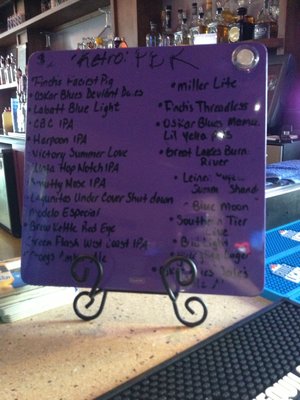 $ "Retro" PBR
Finchs Facist Pig
Oskar Blues Deviant Dales
Labatt Blue Light
CBC IPA
Harpoon IPA
Victory Summer Love
Hop Notch IPA
Smutty Nose IPA
Lagunitas Under Cover Shut down
Modelo Especial
Brew Kettle Red Eye
Green Flash West Coast IPA
Ale
Miller Lite
Finchs Threadless
Oskar Blues Mamas
Lil Yella
Great Lakes Burn
River
Leine
Shand
Blue Moon
Southern Tier
Live
Bud Light
Lager